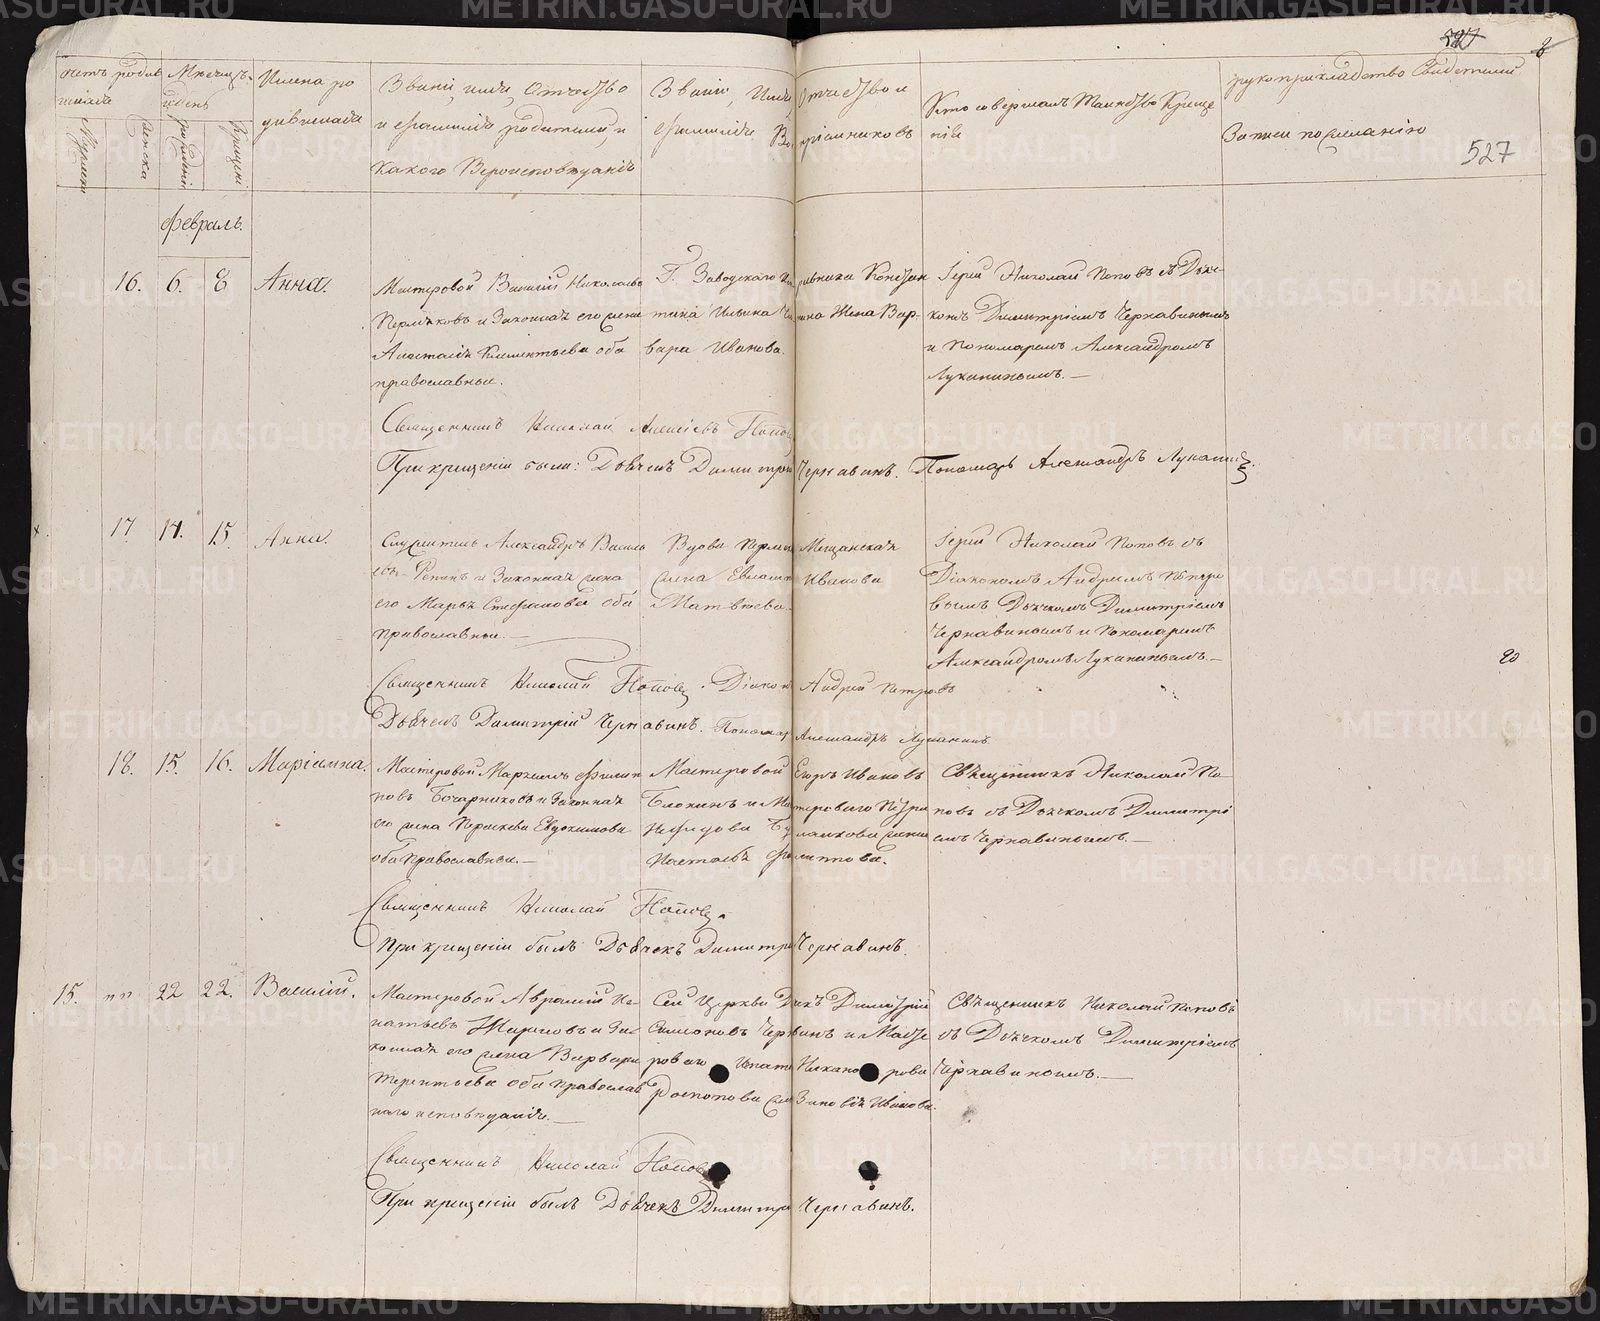 527
8
Счетъ родив
шихся
Мужеска
Женска
Мѣсяцъ
и день
рожденія
крещенія
Имена ро
дившихся
Званіе, имя, отчество
и фамилія родителей, и
какого Вѣроисповѣданія
Званіе, Имя, отчество и
фамилія Воспріемниковъ
Кто совершалъ Таинство Креще
нія
рукоприкладство Свидетелей
Записи по желанію
527
Февраль.
16. 6. 8 Анна.
Мастеровой Василій Николаевъ
Пермяковъ и Законная его жена
Анастасія Климентьева оба
православные.
Г. Заводскаго
Жена Вар-
вара Иванова.
Іерей Николай Поповъ съ Дьяч-
комъ Димитріемъ Чернавинымъ
и Пономаремъ Александромъ
Луканинымъ.
Священникъ Николай Алексіевъ Поповъ
При крещеніи были: Дьячекъ Димитрій Чернавинъ. Пономарь Александръ Луканинъ.
17 14. 15. Анна.
Служитель Александръ Василь
евъ и Законная жена
его Марья Стефанова оба
Православные.
Вдова Мещанская
жена Иванова
Матвѣева.
Іерей Николай Поповъ съ
Діакономъ Андреемъ Петро
вымъ Дьячкомъ Димитріемъ
Чернавинымъ и Пономаремъ
Александромъ Луканинымъ.
Священникъ Николай Поповъ. Діаконъ Андрей Петровъ
Дьячекъ Димитрій Чернавинъ. Пономарь Александръ Луканинъ.
20
18. 15. 16. Маріамна.
Мастеровой Филип
повъ Бочарниковъ и Законная
его жена Параскева Евдокимова
оба Православные.
Мастеровой Егоръ Ивановъ
Блохинъ и Мастероваго Петра
Нефедова жена
Настасья Филиппова.
Священникъ Николай По-
повъ съ Дьячкомъ Димитрі
емъ Чернавинымъ.
Священникъ Николай Поповъ
При крещеніи былъ Дьячекъ Димитрій Чернавинъ.
15. 22 22. Василій.
Мастеровой Аврамій Иг-
натьевъ и За-
конная его жена Варвара
Терентьева оба православ
наго исповѣданія.
Сей Церкви Дьячекъ Димитрій
Симоновъ Чернавинъ и Масте
роваго Игнатія Никанорова
жена Зиновія Иванова.
Священникъ Николай Поповъ
съ Дьячкомъ Димитріемъ
Чернавинымъ.
Священникъ Николай Поповъ
При крещеніи былъ Дьячекъ Димитрій Чернавинъ.
METRIKI.GASO-URAL.RU